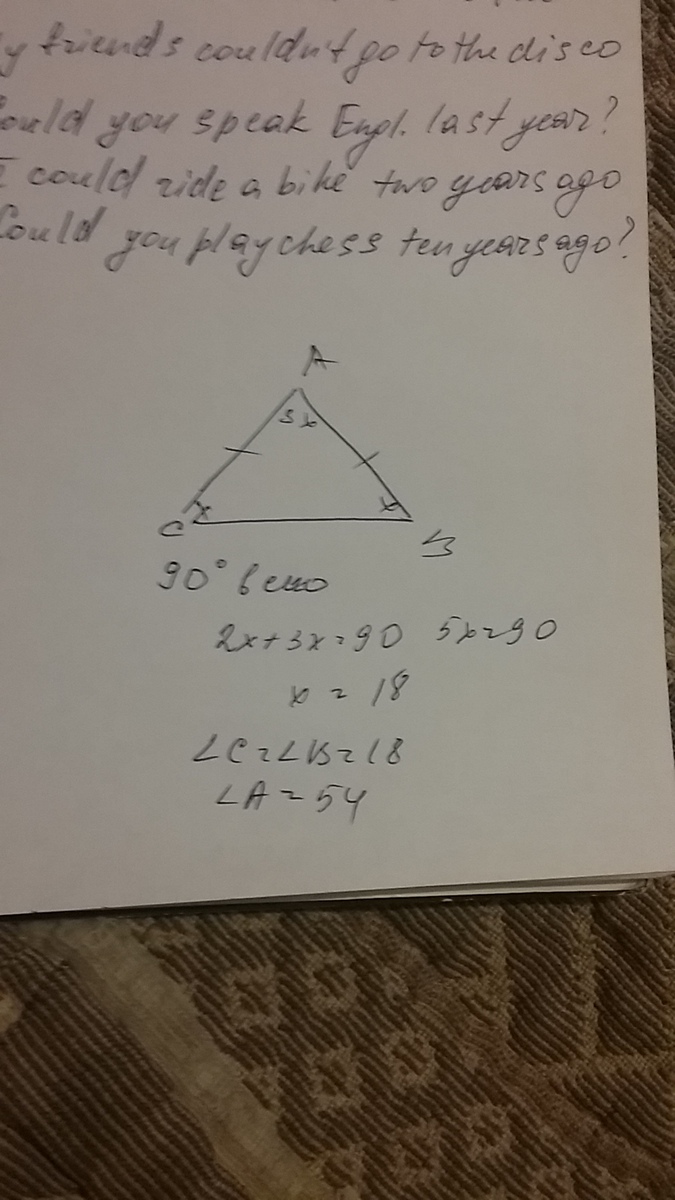 friends couldn't go to the disco
could you speak Engl. last year?
I could ride a bike two years ago
Could you play chess ten years ago?
A
3x
x
x
C
B
90°
2x+3x=90 5x=90
x = 18
∠C=∠B=18
∠A=54